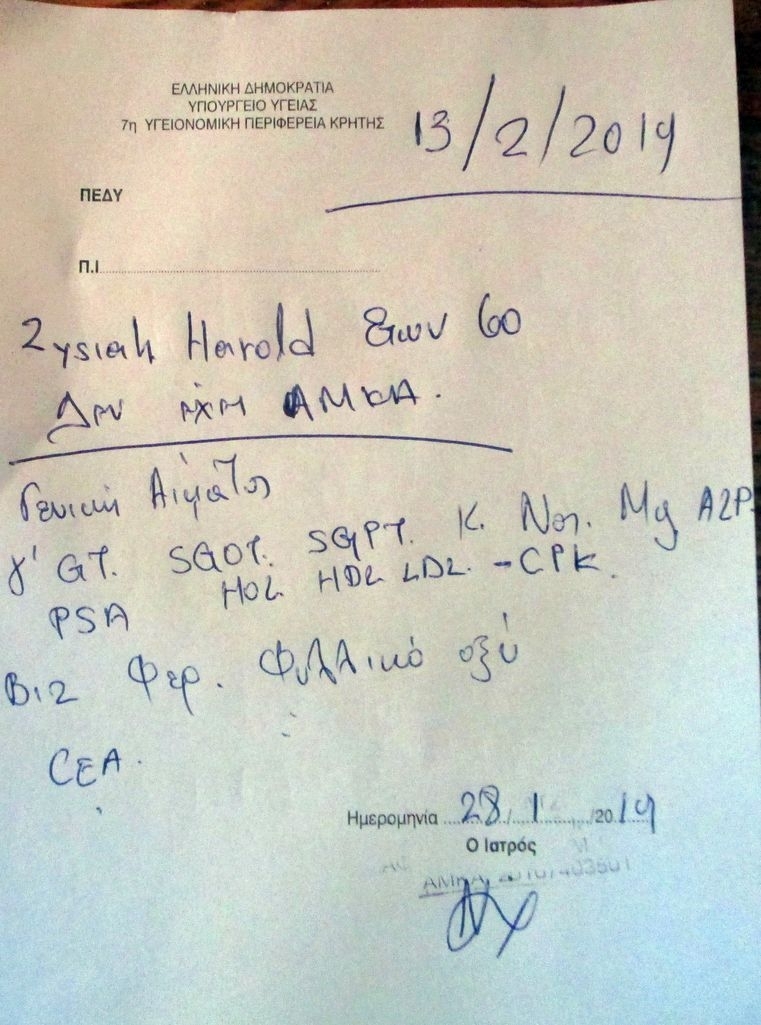 ΕΛΛΗΝΙΚΗ ΔΗΜΟΚΡΑΤΙΑ
ΥΠΟΥΡΓΕΙΟ ΥΓΕΙΑΣ
7η ΥΓΕΙΟΝΟΜΙΚΗ ΠΕΡΙΦΕΡΕΙΑ ΚΡΗΤΗΣ
13/2/2019
ΠΕΔΥ
Π.Ι
Zysiak Harold Ετων 60
Δεν έχει ΑΜΚΑ.
Γενική Αίματος
γ' GT. SGOT. SGPT. K. Να. Mg
PSA HDL LDL - CPK.
B12 Φερ. Φυλλικό οξύ
CEA.
Ημερομηνία 28/1/2019
Ο Ιατρός
ΑΜΚΑ